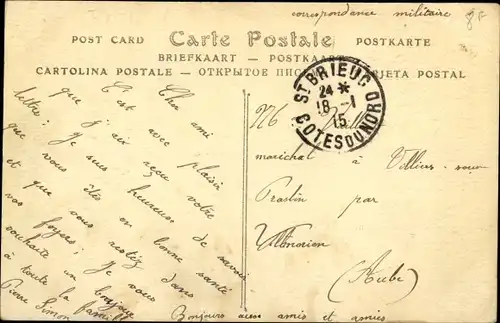 correspondance militaire
POST CARD Carte Postale POSTKARTE
BRIEFKAART — POSTKAART
CARTOLINA POSTALE — ОТКРЫТОЕ ПИС TARJETA POSTAL
ST BRIEUC
24 *
18 - 1
15
COTES DU NORD
Cher ami
C'est avec plaisir
que j'ai reçu votre
lettre; je suis heureux de savoir
que vous êtes en bonne santé
et que vous restez dans
vos foyers; je vous
souhaite un bonjour
à toute la famille
Pierre Simon
Mr
maréchal à Villiers-sous-
Praslin par
Villemorien
(Aube)
Bonjours aux amis et amies